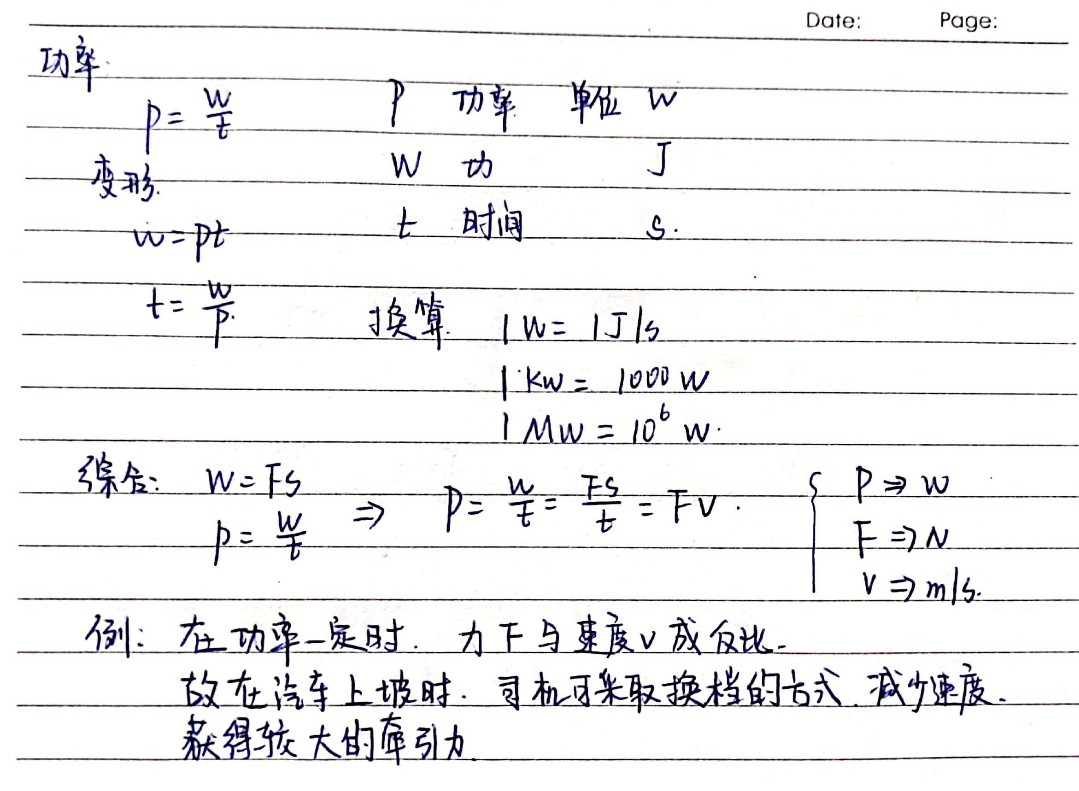 Date: Page:
功率.
P = W/t P 功率 单位 W
变形. W 功 J
W = Pt t 时间 s.
t = W/P. 换算. 1 W = 1 J/s
1 KW = 1000 W
1 MW = 10⁶ W.
综合: W = FS ⇒ P = W/t = FS/t = FV. { P ⇒ W
P = W/t F ⇒ N
V ⇒ m/s.
例: 在功率一定时. 力 F 与速度 v 成反比.
故在汽车上坡时. 司机可采取换档的方式. 减少速度.
获得较大的牵引力.